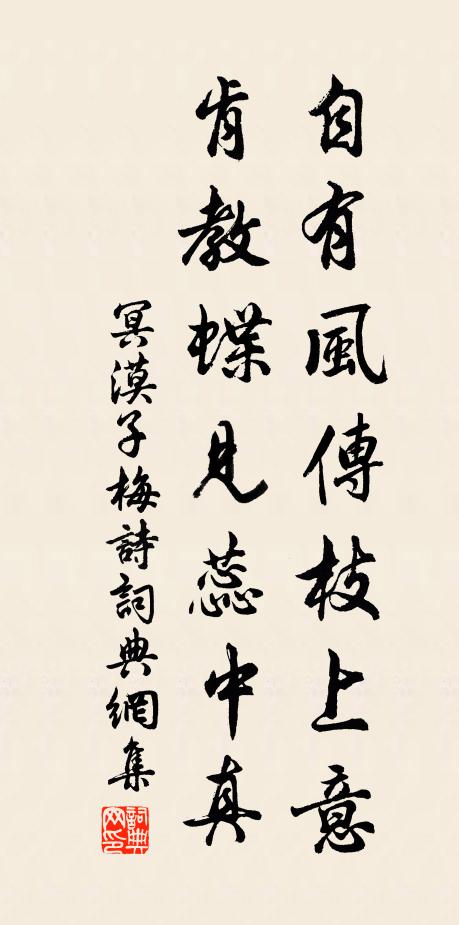 自有風傳枝上意
肯教蝶見蕊中真
冥漠子梅詩詞典網集
詞典网印